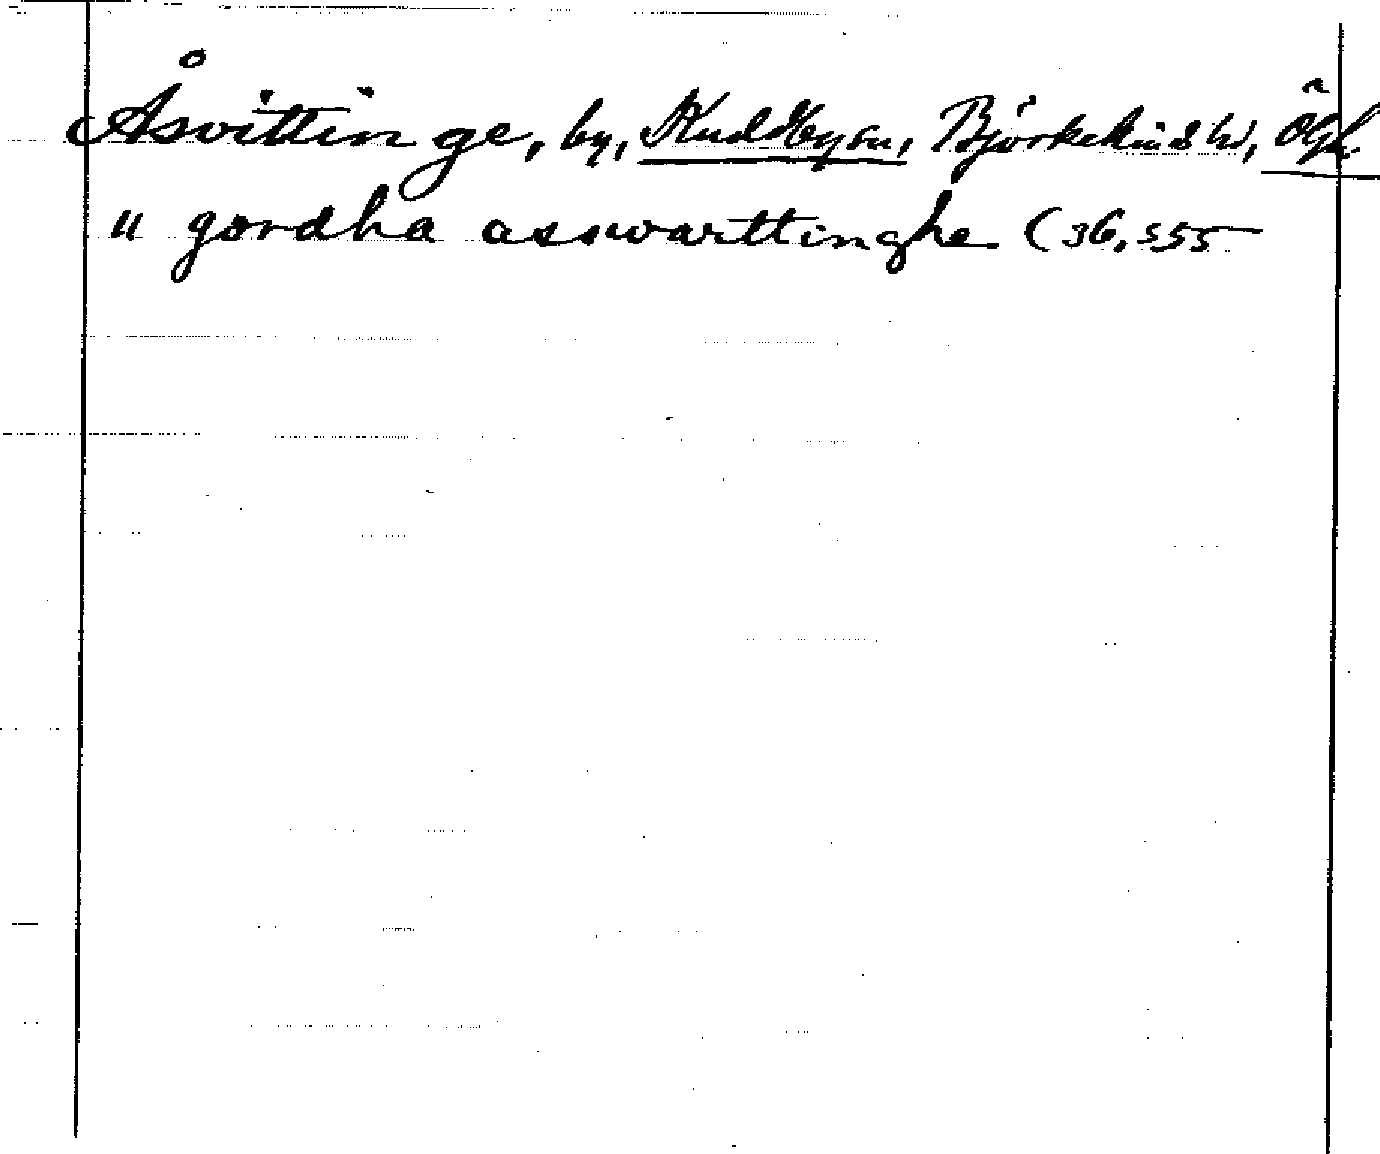 Åsvittinge, by, Kuddby sn, Björkekinds hd, Ögl.
" gordha asswarttinghe (36, 555